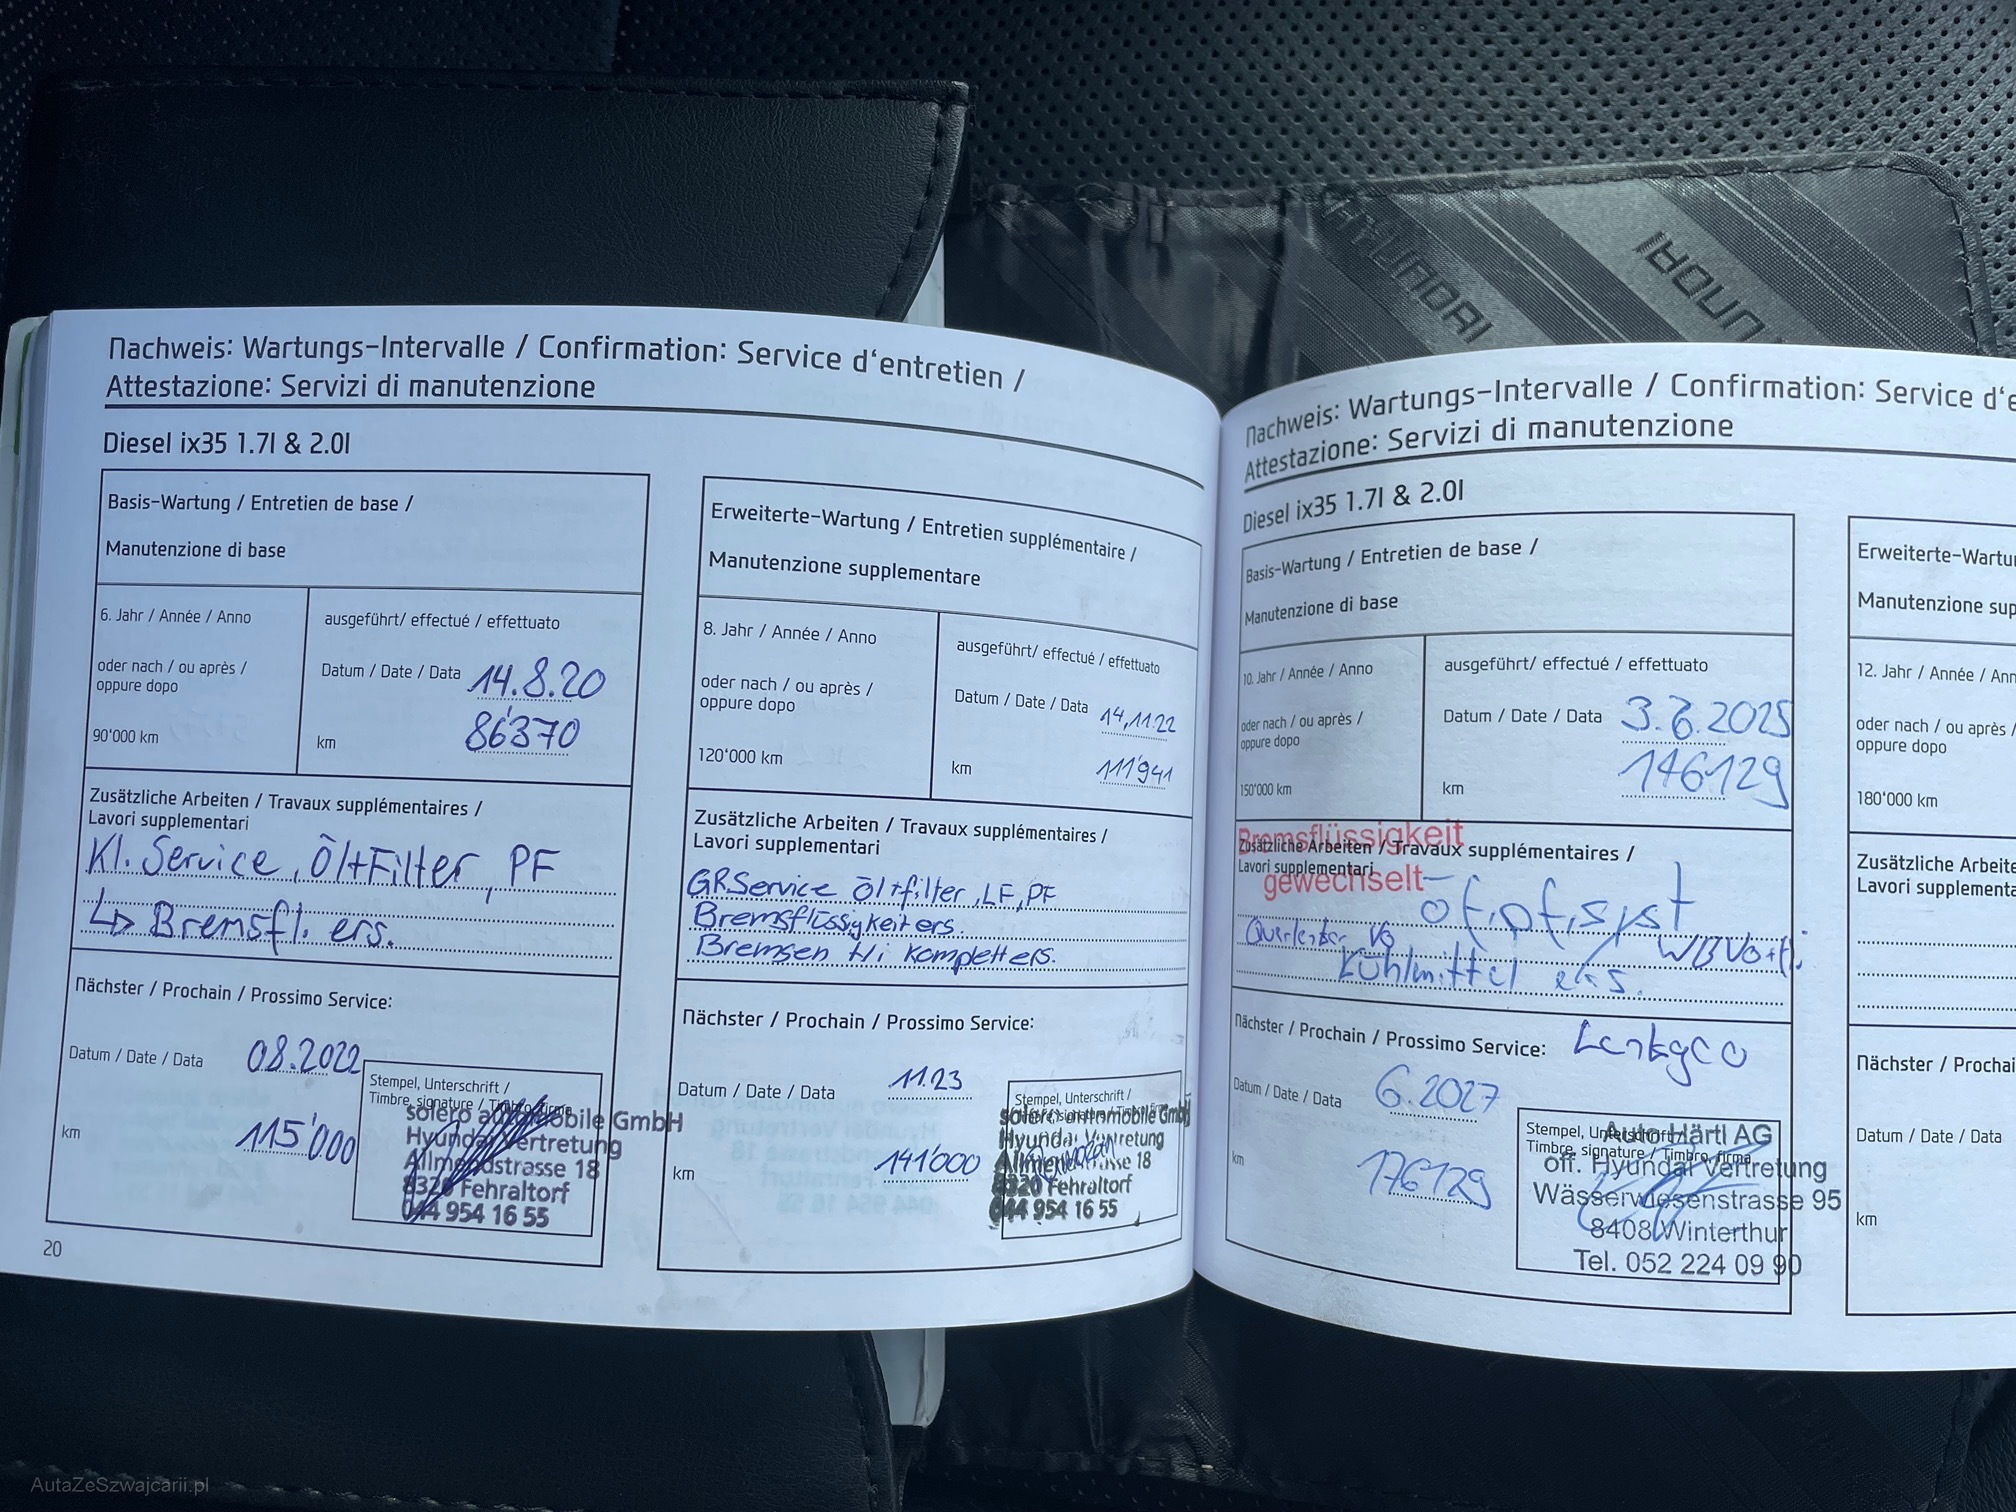 HYUNDAI
Nachweis: Wartungs-Intervalle / Confirmation: Service d'entretien /
Attestazione: Servizi di manutenzione
Diesel ix35 1.7l & 2.0l
Basis-Wartung / Entretien de base /
Manutenzione di base
6. Jahr / Année / Anno
oder nach / ou après /
oppure dopo
90'000 km
ausgeführt/ effectué / effettuato
Datum / Date / Data 14.8.20
km 86'370
Zusätzliche Arbeiten / Travaux supplémentaires /
Lavori supplementari
Kl. Service, Öl+Filter, PF
↳ Bremsfl. ers.
Nächster / Prochain / Prossimo Service:
Datum / Date / Data 08.2022
km 115'000
Stempel, Unterschrift /
Timbre, signature / Timbro, firma
solero automobile GmbH
Hyundai Vertretung
Allmendstrasse 18
8320 Fehraltorf
044 954 16 55
20
Erweiterte-Wartung / Entretien supplémentaire /
Manutenzione supplementare
8. Jahr / Année / Anno
oder nach / ou après /
oppure dopo
120'000 km
ausgeführt/ effectué / effettuato
Datum / Date / Data 14.11.22
km 111'941
Zusätzliche Arbeiten / Travaux supplémentaires /
Lavori supplementari
GR.Service Öl+filter, LF, PF
Bremsflüssigkeit ers.
Bremsen Hi komplett ers.
Nächster / Prochain / Prossimo Service:
Datum / Date / Data 11.23
km 141'000
Stempel, Unterschrift /
Timbre, signature / Timbro, firma
solero automobile GmbH
Hyundai Vertretung
Allmendstrasse 18
8320 Fehraltorf
044 954 16 55
Nachweis: Wartungs-Intervalle / Confirmation: Service d'e
Attestazione: Servizi di manutenzione
Diesel ix35 1.7l & 2.0l
Basis-Wartung / Entretien de base /
Manutenzione di base
10. Jahr / Année / Anno
oder nach / ou après /
oppure dopo
150'000 km
ausgeführt/ effectué / effettuato
Datum / Date / Data 3.6.2025
km 146129
Bremsflüssigkeit
gewechselt
Zusätzliche Arbeiten / Travaux supplémentaires /
Lavori supplementari
Querlenker Vo
Kühlmittel ers.
Nächster / Prochain / Prossimo Service:
Datum / Date / Data 6.2027
km 176129
Stempel, Unterschrift /
Timbre, signature / Timbro, firma
Auto Härtl AG
off. Hyundai Vertretung
Wässerwiesenstrasse 95
8408 Winterthur
Tel. 052 224 09 90
Erweiterte-Wartu
Manutenzione sup
12. Jahr / Année / Ann
oder nach / ou après /
oppure dopo
180'000 km
Zusätzliche Arbeite
Lavori supplementa
Nächster / Prochai
Datum / Date / Data
km
AutaZeSzwajcarii.pl